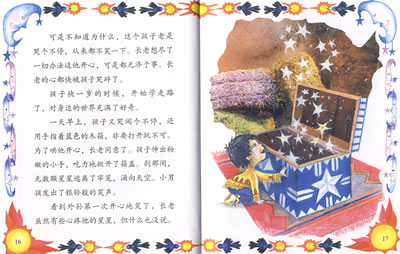 可是不知道为什么，这个孩子老是
哭个不停，从来都不笑一下。长老想尽了
一切办法逗他开心，可是都无济于事。长
老的心都快被孩子哭碎了。
孩子快一岁的时候，开始学走路
了，对身边的世界充满了好奇。
一天早上，孩子又哭闹个不停，还
用手指着蓝色的木箱，非要打开玩不可。
为了哄他开心，长老同意了。孩子伸出粉
嫩的小手，吃力地掀开了箱盖。刹那间，
无数颗星星逃离了牢笼，涌向天空。小男
孩发出了银铃般的笑声。
看到外孙第一次开心地笑了，长老
虽然有些心疼他的星星，但什么也没说。
16
17